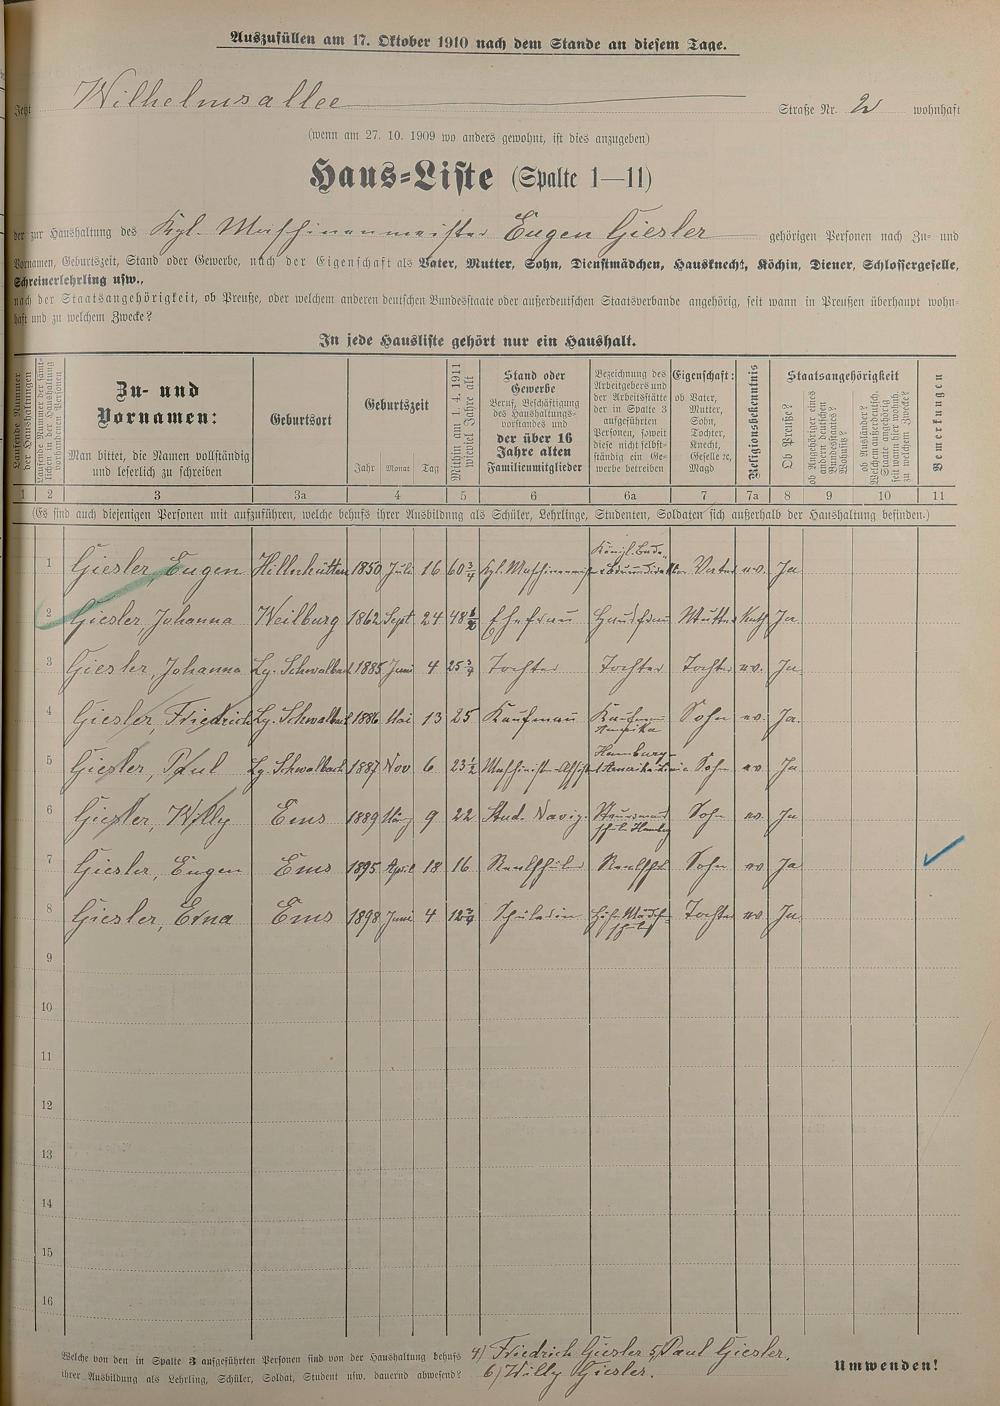 Auszufüllen am 17. Oktober 1910 nach dem Stande an diesem Tage.
Jetzt Wilhelmsallee Straße Nr. 2 wohnhaft
(wenn am 27. 10. 1909 wo anders gewohnt, ist dies anzugeben)
Haus-Liste (Spalte 1—11)
der zur Haushaltung des Kgl. Maschinenmeister Eugen Giesler gehörigen Personen nach Zu- und
Vornamen, Geburtszeit, Stand oder Gewerbe, nach der Eigenschaft als Vater, Mutter, Sohn, Dienstmädchen, Hausknecht, Köchin, Diener, Schlossergeselle,
Schreinerlehrling usw.,
nach der Staatsangehörigkeit, ob Preuße, oder welchem anderen deutschen Bundesstaate oder außerdeutschen Staatsverbande angehörig, seit wann in Preußen überhaupt wohn-
haft und zu welchem Zwecke?
In jede Hausliste gehört nur ein Haushalt.
Laufende Nummer der Haushaltungen
Laufende Nummer der sämt-
lichen in der Haushaltung
vorhandenen Personen
Zu- und
Vornamen:
Man bittet, die Namen vollständig
und leserlich zu schreiben
Geburtsort
Geburtszeit
Jahr Monat Tag
Mithin am 1. 4. 1911
wieviel Jahre alt
Stand oder
Gewerbe
Beruf, Beschäftigung
des Haushaltungs-
vorstandes und
der über 16
Jahre alten
Familienmitglieder
Bezeichnung des
Arbeitgebers und
der Arbeitstätte
der in Spalte 3
aufgeführten
Personen, soweit
diese nicht selbst-
ständig ein Ge-
werbe betreiben
Eigenschaft:
ob Vater,
Mutter,
Sohn,
Tochter,
Knecht,
Geselle ꝛc,
Magd
Religionsbekenntnis
Staatsangehörigkeit
Ob Preuße?
ob Angehöriger eines
andern deutschen
Bundesstaates?
Wohnsitz?
ob Ausländer?
Welchem außerdeutsch.
Staate angehörig
seit wann hier wohnh.
zu welchem Zwecke?
Bemerkungen
1 2 3 3a 4 5 6 6a 7 7a 8 9 10 11
(Es sind auch diejenigen Personen mit aufzuführen, welche behufs ihrer Ausbildung als Schüler, Lehrlinge, Studenten, Soldaten sich außerhalb der Haushaltung befinden.)
1 Giesler, Eugen Hillnhütten 1850 Juli 16 60 3/4 Kgl. Maschinenmeister Königl. Bade- Vater ev. Ja
2 Giesler, Johanna Weilburg 1862 Sept 24 48 Ehefrau Hausfrau Mutter Kath Ja
3 Giesler, Johanna Lg. Schwalbach 1885 Juni 4 25 3/4 Tochter Tochter Tochter ev. Ja
4 Giesler, Friedrich Lg. Schwalbach 1886 Mai 13 25 Kaufmann Kaufmann Amerika Sohn ev. Ja
5 Giesler, Paul Lg. Schwalbach 1887 Nov 6 23 1/2 Maschinist-Assist Hamburg- Amerika Linie Sohn ev Ja
6 Giesler, Willy Ems 1889 März 9 22 Stud. Navig. Steuermannschule Hambg Sohn ev. Ja
7 Giesler, Eugen Ems 1895 April 18 16 Realschüler Realschl Sohn ev Ja
8 Giesler, Erna Ems 1898 Juni 4 12 3/4 Schülerin Höh. Mädch- schule Tochter ev Ja
9
10
11
12
13
14
15
16
Welche von den in Spalte 3 aufgeführten Personen sind von der Haushaltung behufs 4) Friedrich Giesler 5) Paul Giesler.
ihrer Ausbildung als Lehrling, Schüler, Soldat, Student usw. dauernd abwesend? 6) Willy Giesler.
Umwenden!